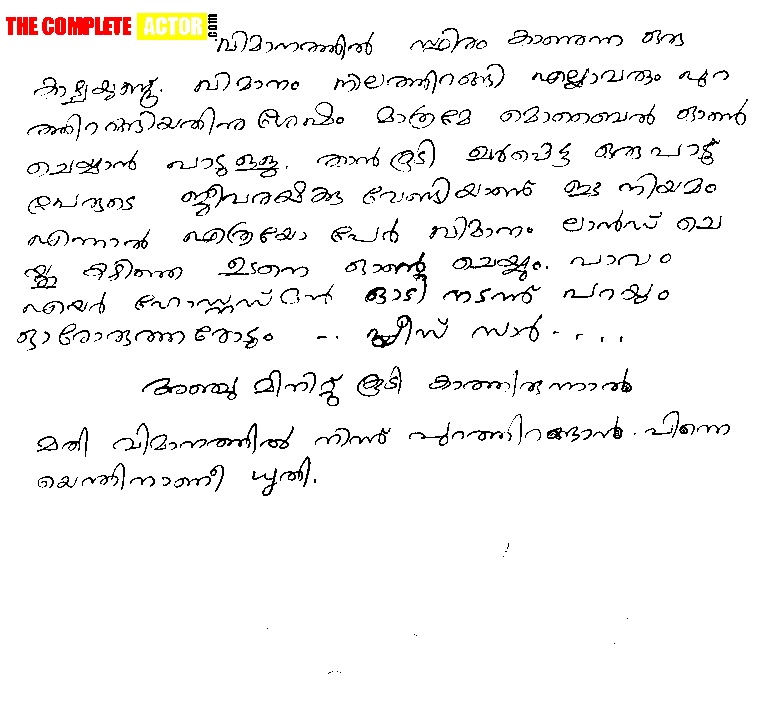 THE COMPLETE ACTOR .com
വിമാനത്തിൽ സ്ഥിരം കാണുന്ന ഒരു
കാഴ്ചയുണ്ട്. വിമാനം നിലത്തിറങ്ങി എല്ലാവരും പുറ
ത്തിറങ്ങിയതിനു ശേഷം മാത്രമേ മൊബൈൽ ഓൺ
ചെയ്യാൻ പാടുള്ളു. താൻ കൂടി ഉൾപ്പെട്ട ഒരുപാട്
പേരുടെ ജീവരക്ഷക്കു വേണ്ടിയാണ് ഈ നിയമം
എന്നാൽ എത്രയോ പേർ വിമാനം ലാൻഡ് ചെ
യ്തു കഴിഞ്ഞ ഉടനെ ഓൺ ചെയ്യും. പാവം
എയർ ഹോസ്റ്റസ്ഗൾ ഓടി നടന്ന് പറയും
ഓരോരുത്തരോടും -.. പ്ലീസ് സാർ-....
അഞ്ചു മിനിറ്റ് കൂടി കാത്തിരുന്നാൽ
മതി വിമാനത്തിൽ നിന്ന് പുറത്തിറങ്ങാൻ. പിന്നെ
യെന്തിനാണീ ധൃതി.